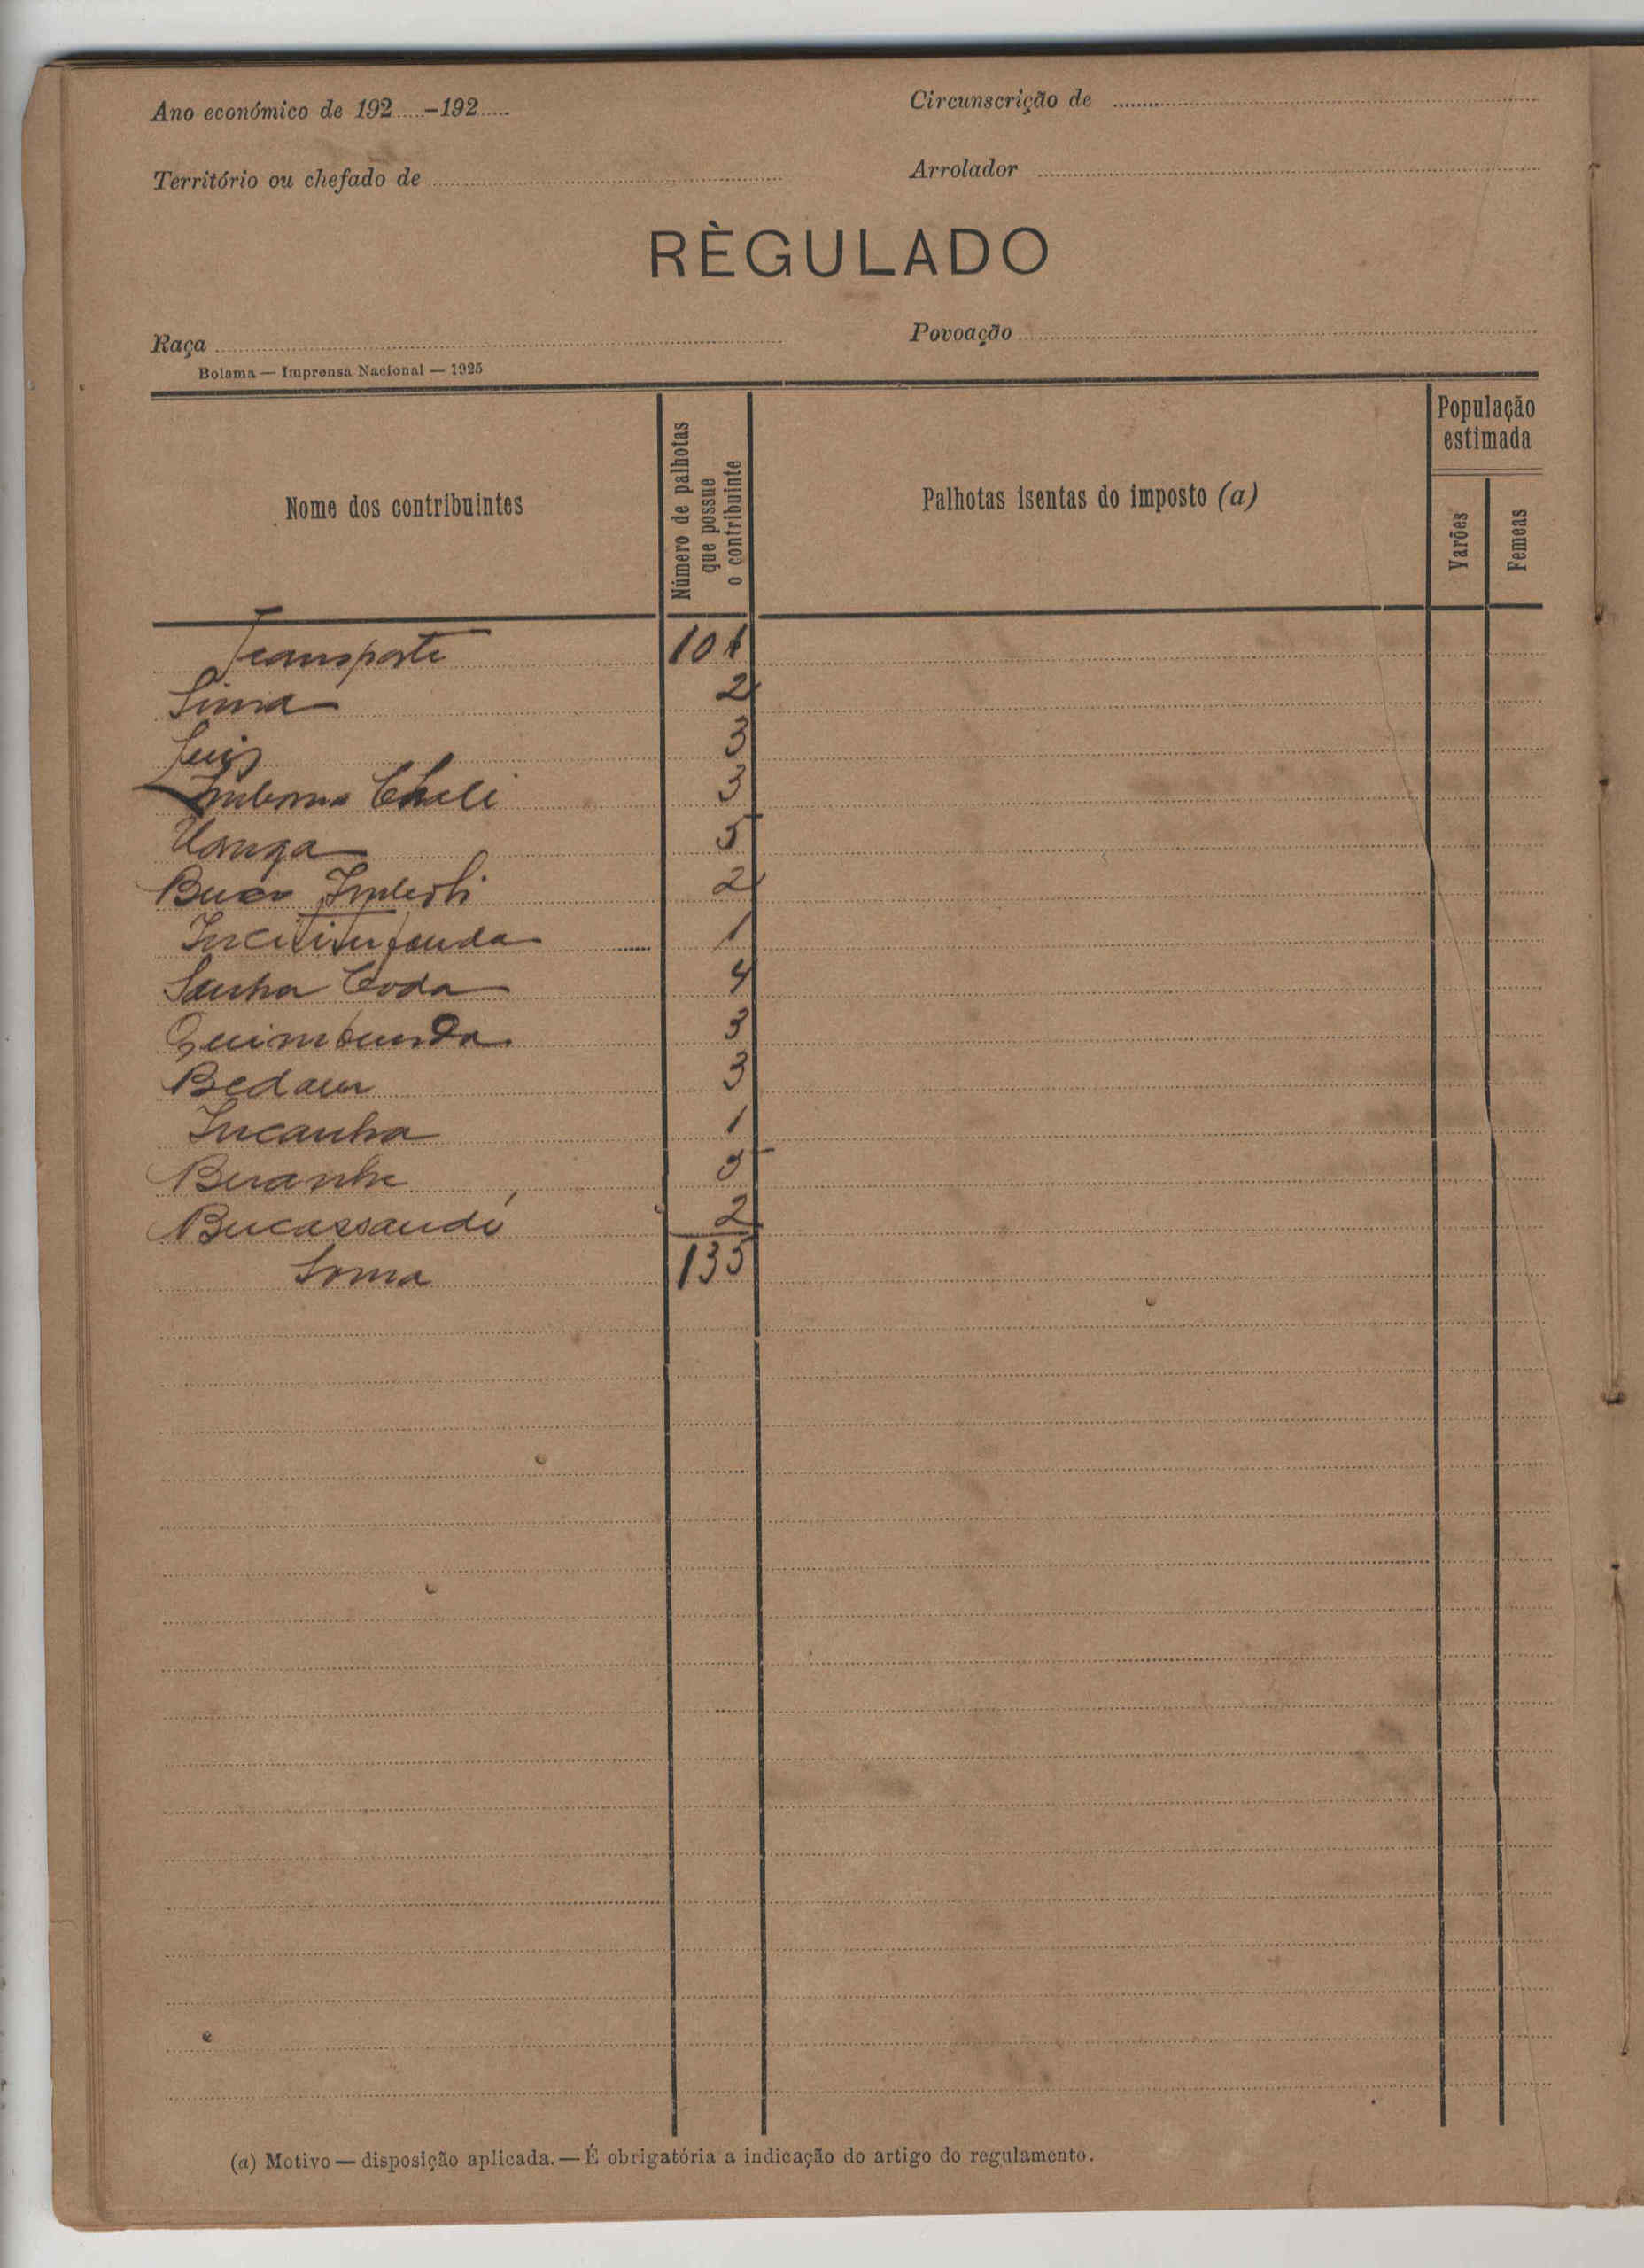 Ano económico de 192.....-192.....
Circunscrição de
Território ou chefado de
Arrolador
RÈGULADO
Raça
Povoação
Bolama — Imprensa Nacional — 1925
Nome dos contribuintes
Número de palhotas
que possue
o contribuinte
Palhotas isentas do imposto (a)
População
estimada
Varões
Femeas
Transporte 101
Sinna 2
Luis 3
Chali 3
Uanga 5
Buco 2
1
Sanha Coda 4
Quimbunda 3
Bedaur 3
Incanha 1
Buanhe 5
Bucassandé 2
Soma 135
(a) Motivo — disposição aplicada. — É obrigatória a indicação do artigo do regulamento.